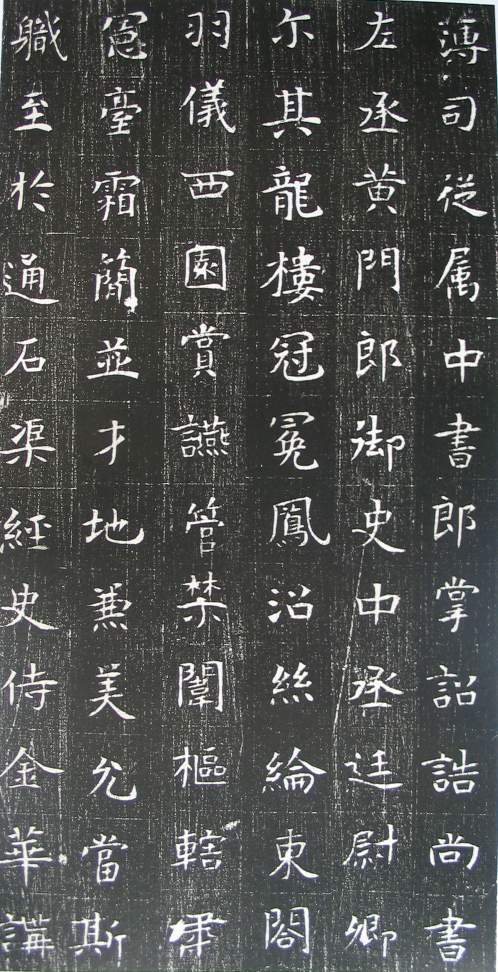 薄司従属中書郎掌詔誥尚書
左丞黄門郎御史中丞廷尉卿
尓其龍樓冠冕鳳沼絲綸東閤
羽儀西園賞讌管禁闈樞轄肅
憲臺霜簡並才地兼美允當斯
職至於通石渠經史侍金華講